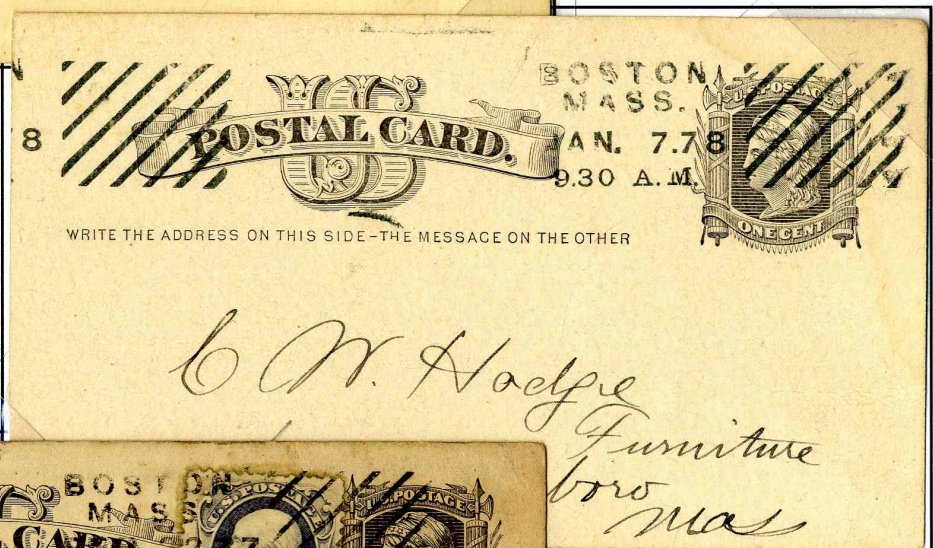 8
US
POSTAL CARD.
BOSTON
MASS.
JAN. 7.78
9.30 A.M.
U.S. POSTAGE
ONE CENT
WRITE THE ADDRESS ON THIS SIDE–THE MESSAGE ON THE OTHER
C W. Hodge
Furniture
boro
Mas
BOSTON
MASS
CARD
U.S. POSTAGE
U.S. POSTAGE